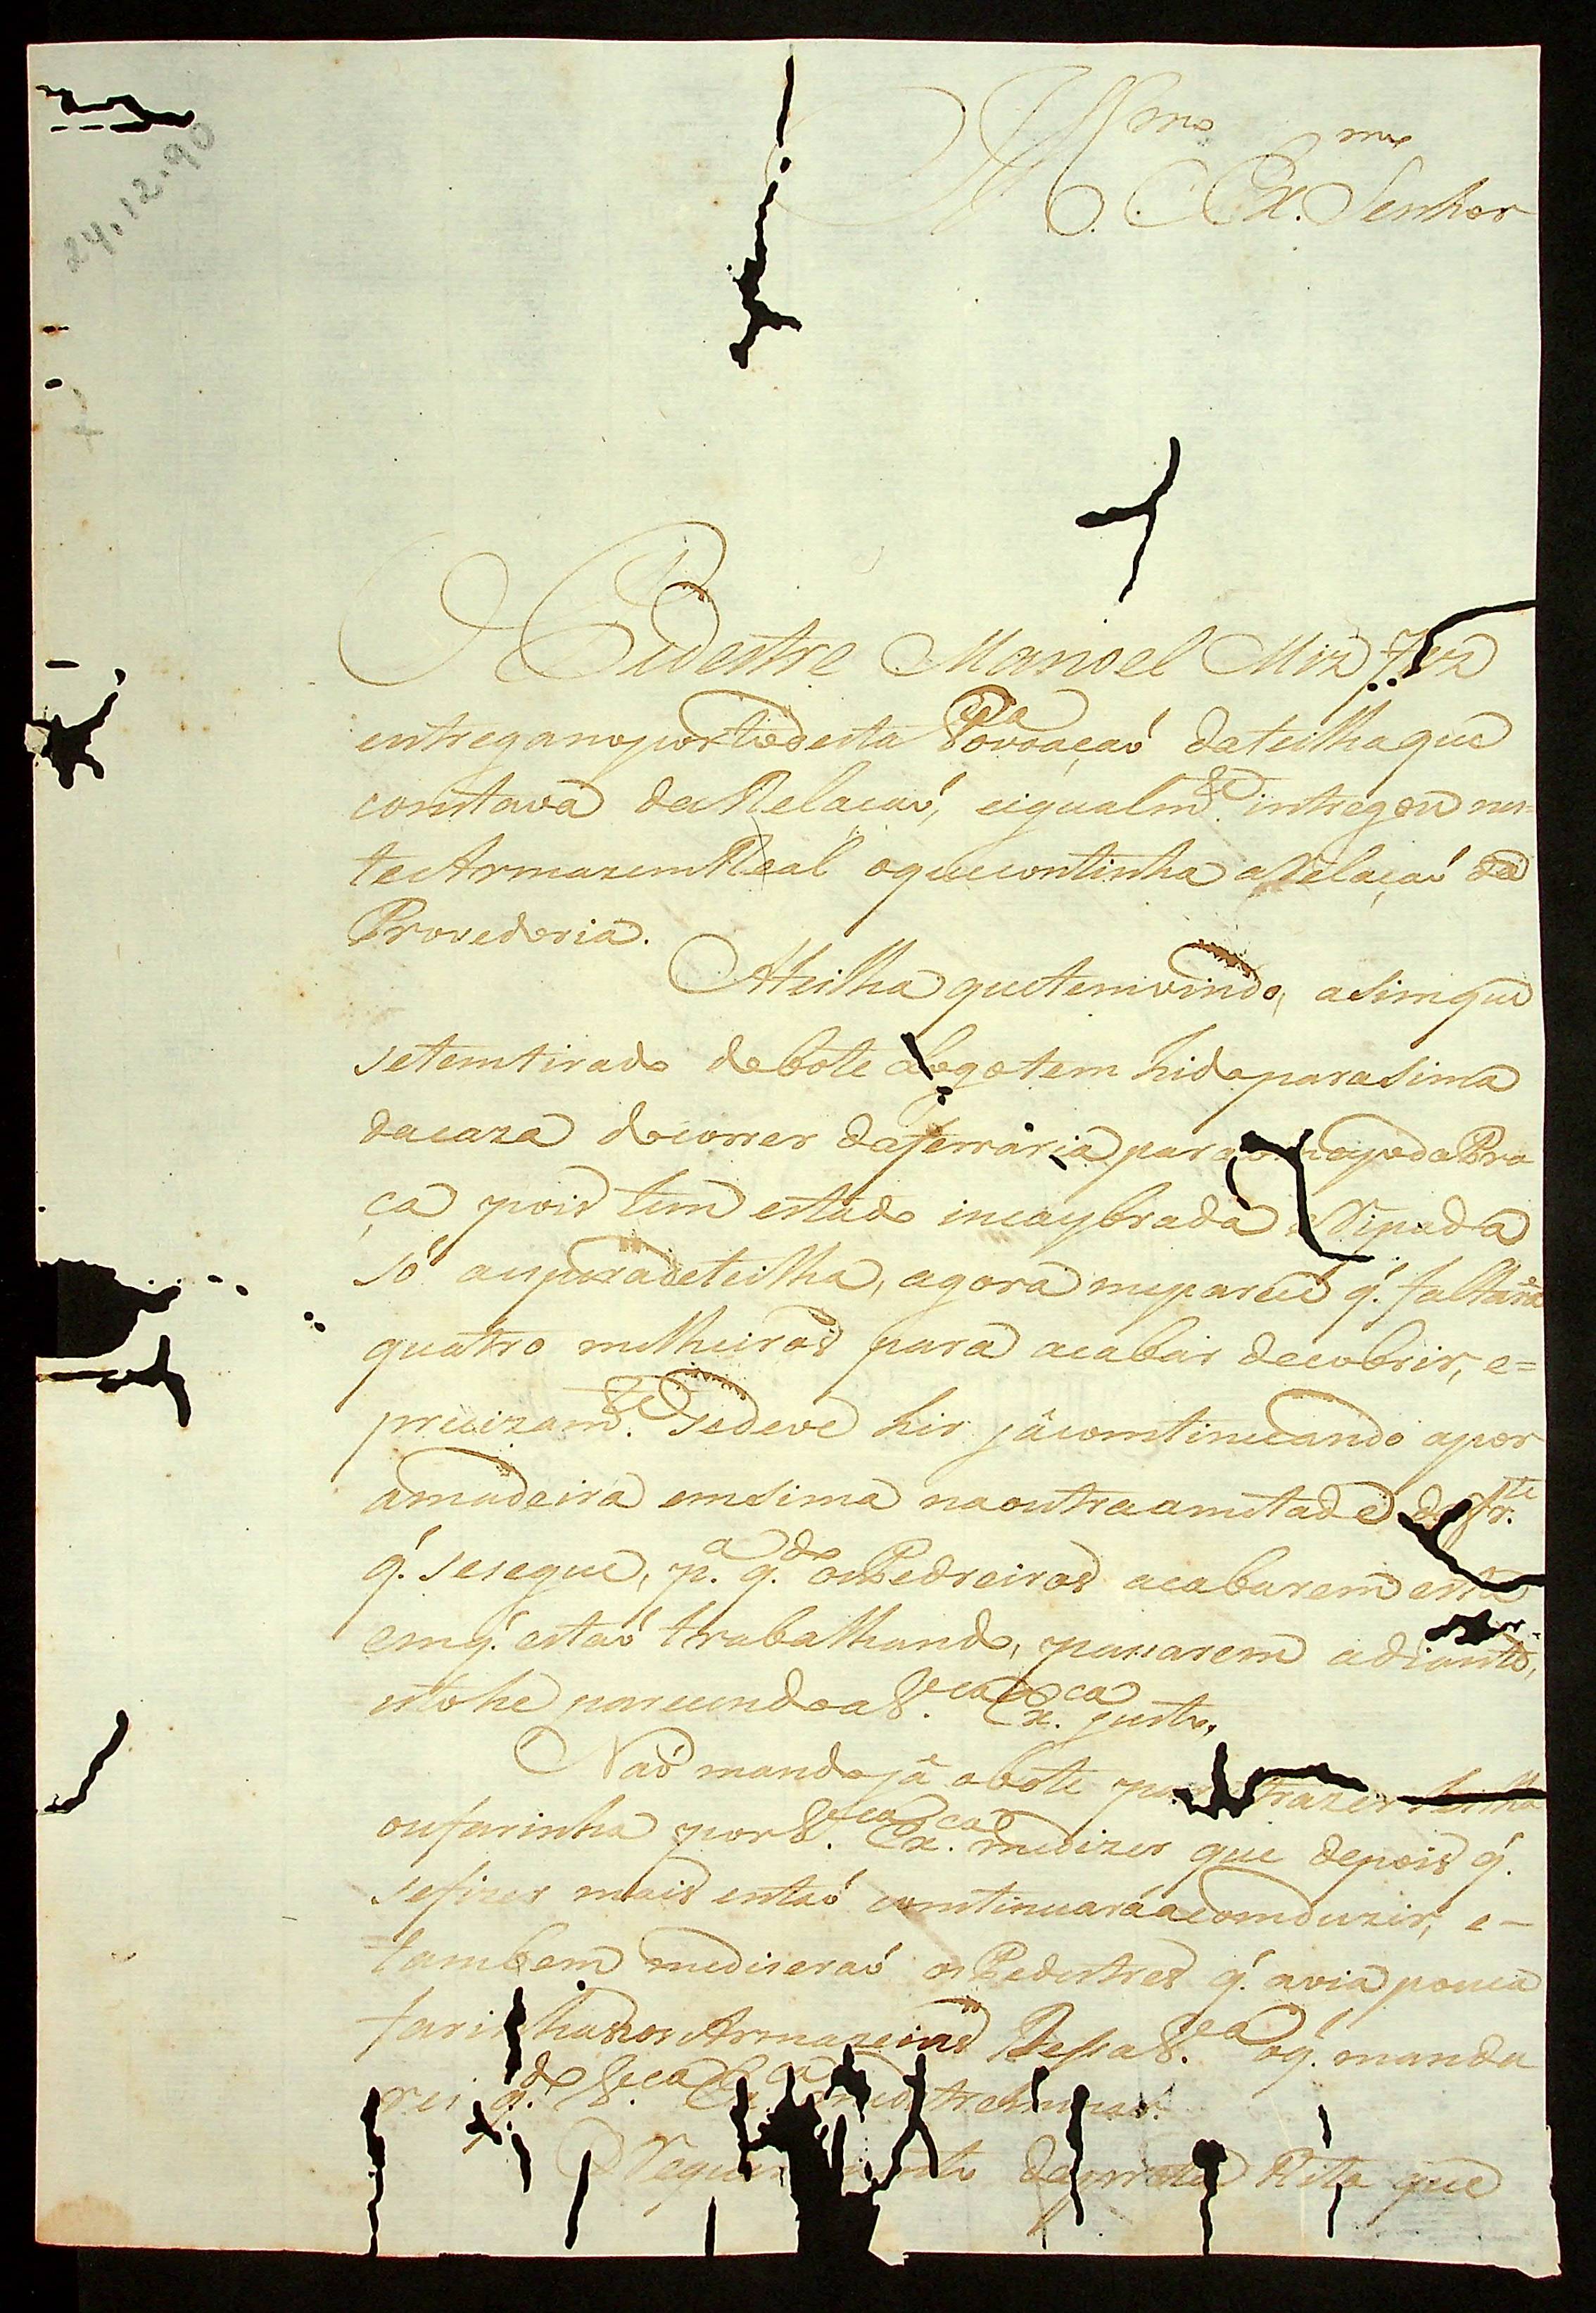 24.12.90
Ill.mo e Ex.mo Senhor
O Pedestre Manoel Miz fez
entrega no porto desta Povoaçaó da teilha que
constava da Relaçaó, e igualm.te intregou nes=
te Armazem Real o que continha a Relaçaó da
Provedoria.
A teilha que tem vindo, asim que
se tem tirado do bote logo tem hido para sima
da caza do correr da ferraria para o da Pra
ça pois tem estado incaybrada e Ripada
só a espera de teilha, agora me parece q. faltará
quatro milheiros para acabar de cobrir, e=
precizam.te se deve hir já comtinuando a por
a madeira em sima na outra ametade da fr.te
q. se segue, p.a q.do os Pedreiros acabarem esta
em q. estaó trabalhando, pasarem adiante,
isto he parecendo a V.ca Ex.ca justo.
Naó mando já o bote para trazer teilha
ou farinha por V.ca Ex.ca me dizer que depois q.
se fizer mais entaó comtinuará a comduzir, e=
tambem me diseraó os Pedestres q. avia pouca
farinha nos Armazeins Dessa V.a o q. manda
rei q.do V.ca Ex.ca me detreminar.
O Requerimento da preta Rita que